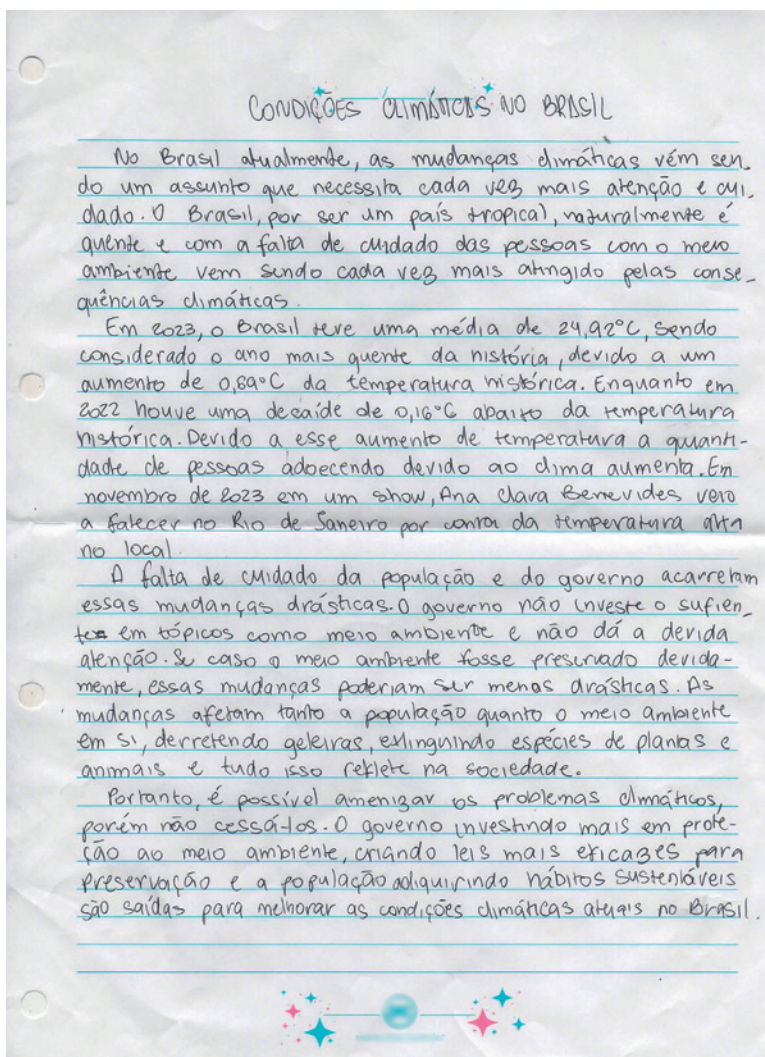 CONDIÇÕES CLIMÁTICAS NO BRASIL
No Brasil atualmente, as mudanças climáticas vêm sen-
do um assunto que necessita cada vez mais atenção e cui-
dado. O Brasil, por ser um país tropical, naturalmente é
quente e com a falta de cuidado das pessoas com o meio
ambiente vem sendo cada vez mais atingido pelas conse-
quências climáticas.
Em 2023, o Brasil teve uma média de 24,92°C, sendo
considerado o ano mais quente da história, devido a um
aumento de 0,69°C da temperatura histórica. Enquanto em
2022 houve uma decaíde de 0,16°C abaixo da temperatura
histórica. Devido a esse aumento de temperatura a quanti-
dade de pessoas adoecendo devido ao clima aumenta. Em
novembro de 2023 em um show, Ana Clara Benevides veio
a falecer no Rio de Janeiro por conta da temperatura alta
no local.
A falta de cuidado da população e do governo acarretam
essas mudanças drásticas. O governo não investe o sufien-
te em tópicos como meio ambiente e não dá a devida
atenção. Se caso o meio ambiente fosse preservado devida-
mente, essas mudanças poderiam ser menas drásticas. As
mudanças afetam tanto a população quanto o meio ambiente
em si, derretendo geleiras, extinguindo espécies de plantas e
animais e tudo isso reflete na sociedade.
Portanto, é possível amenizar os problemas climáticos,
porém não cessá-los. O governo investindo mais em prote-
ção ao meio ambiente, criando leis mais eficazes para
preservação e a população adiquirindo hábitos sustentáveis
são saídas para melhorar as condições climáticas atuais no Brasil.